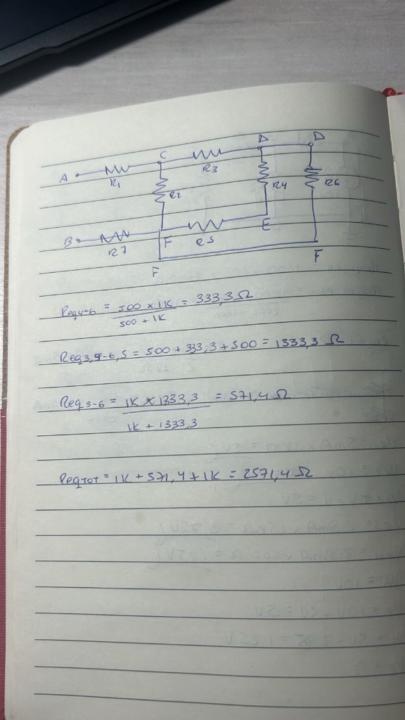 A R1 C R3 D D
R2 R4 R6
B R7 F R5 E
F F
Req4-6 = 500 x 1K / 500 + 1K = 333,3 Ω
Req3,4-6,5 = 500 + 333,3 + 500 = 1333,3 Ω
Req3-6 = 1K x 1333,3 / 1K + 1333,3 = 571,4 Ω
ReqTOT = 1K + 571,4 + 1K = 2571,4 Ω